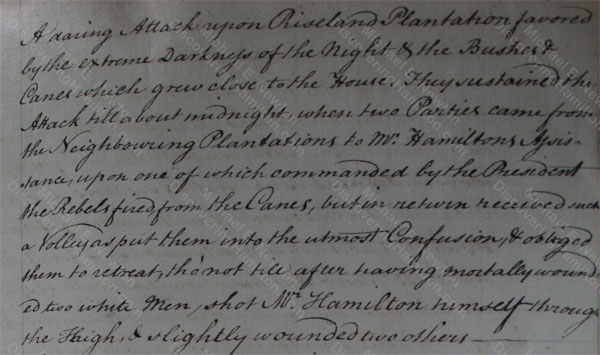 A daring Attack upon Riseland Plantation favored
by the extreme Darkness of the Night & the Bushes &
Canes which grew close to the House. They sustained the
Attack till about midnight when two Parties came from
the Neighbouring Plantations to Mr. Hamiltons Assis-
-tance, upon one of which commanded by the President
the Rebels fired from the Canes, but in return received such
a Volley as put them into the utmost Confusion, & obliged
them to retreat, tho' not till after having mortally wound-
ed two white Men, shot Mr. Hamilton himself through
the Thigh, & slightly wounded two others —